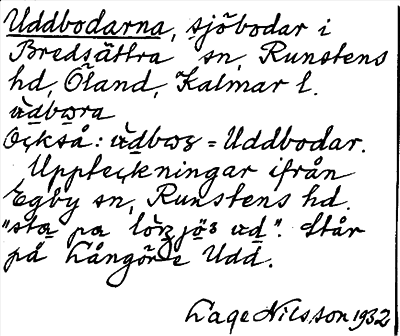 Uddbodarna, sjöbodar i
Bredsättra sn, Runstens
hd, Öland, Kalmar l.

Också: = Uddbodar.
Uppteckningar ifrån
Egby sn, Runstens hd.
". Står
på Långöre Udd.
Lage Nilsson 1932